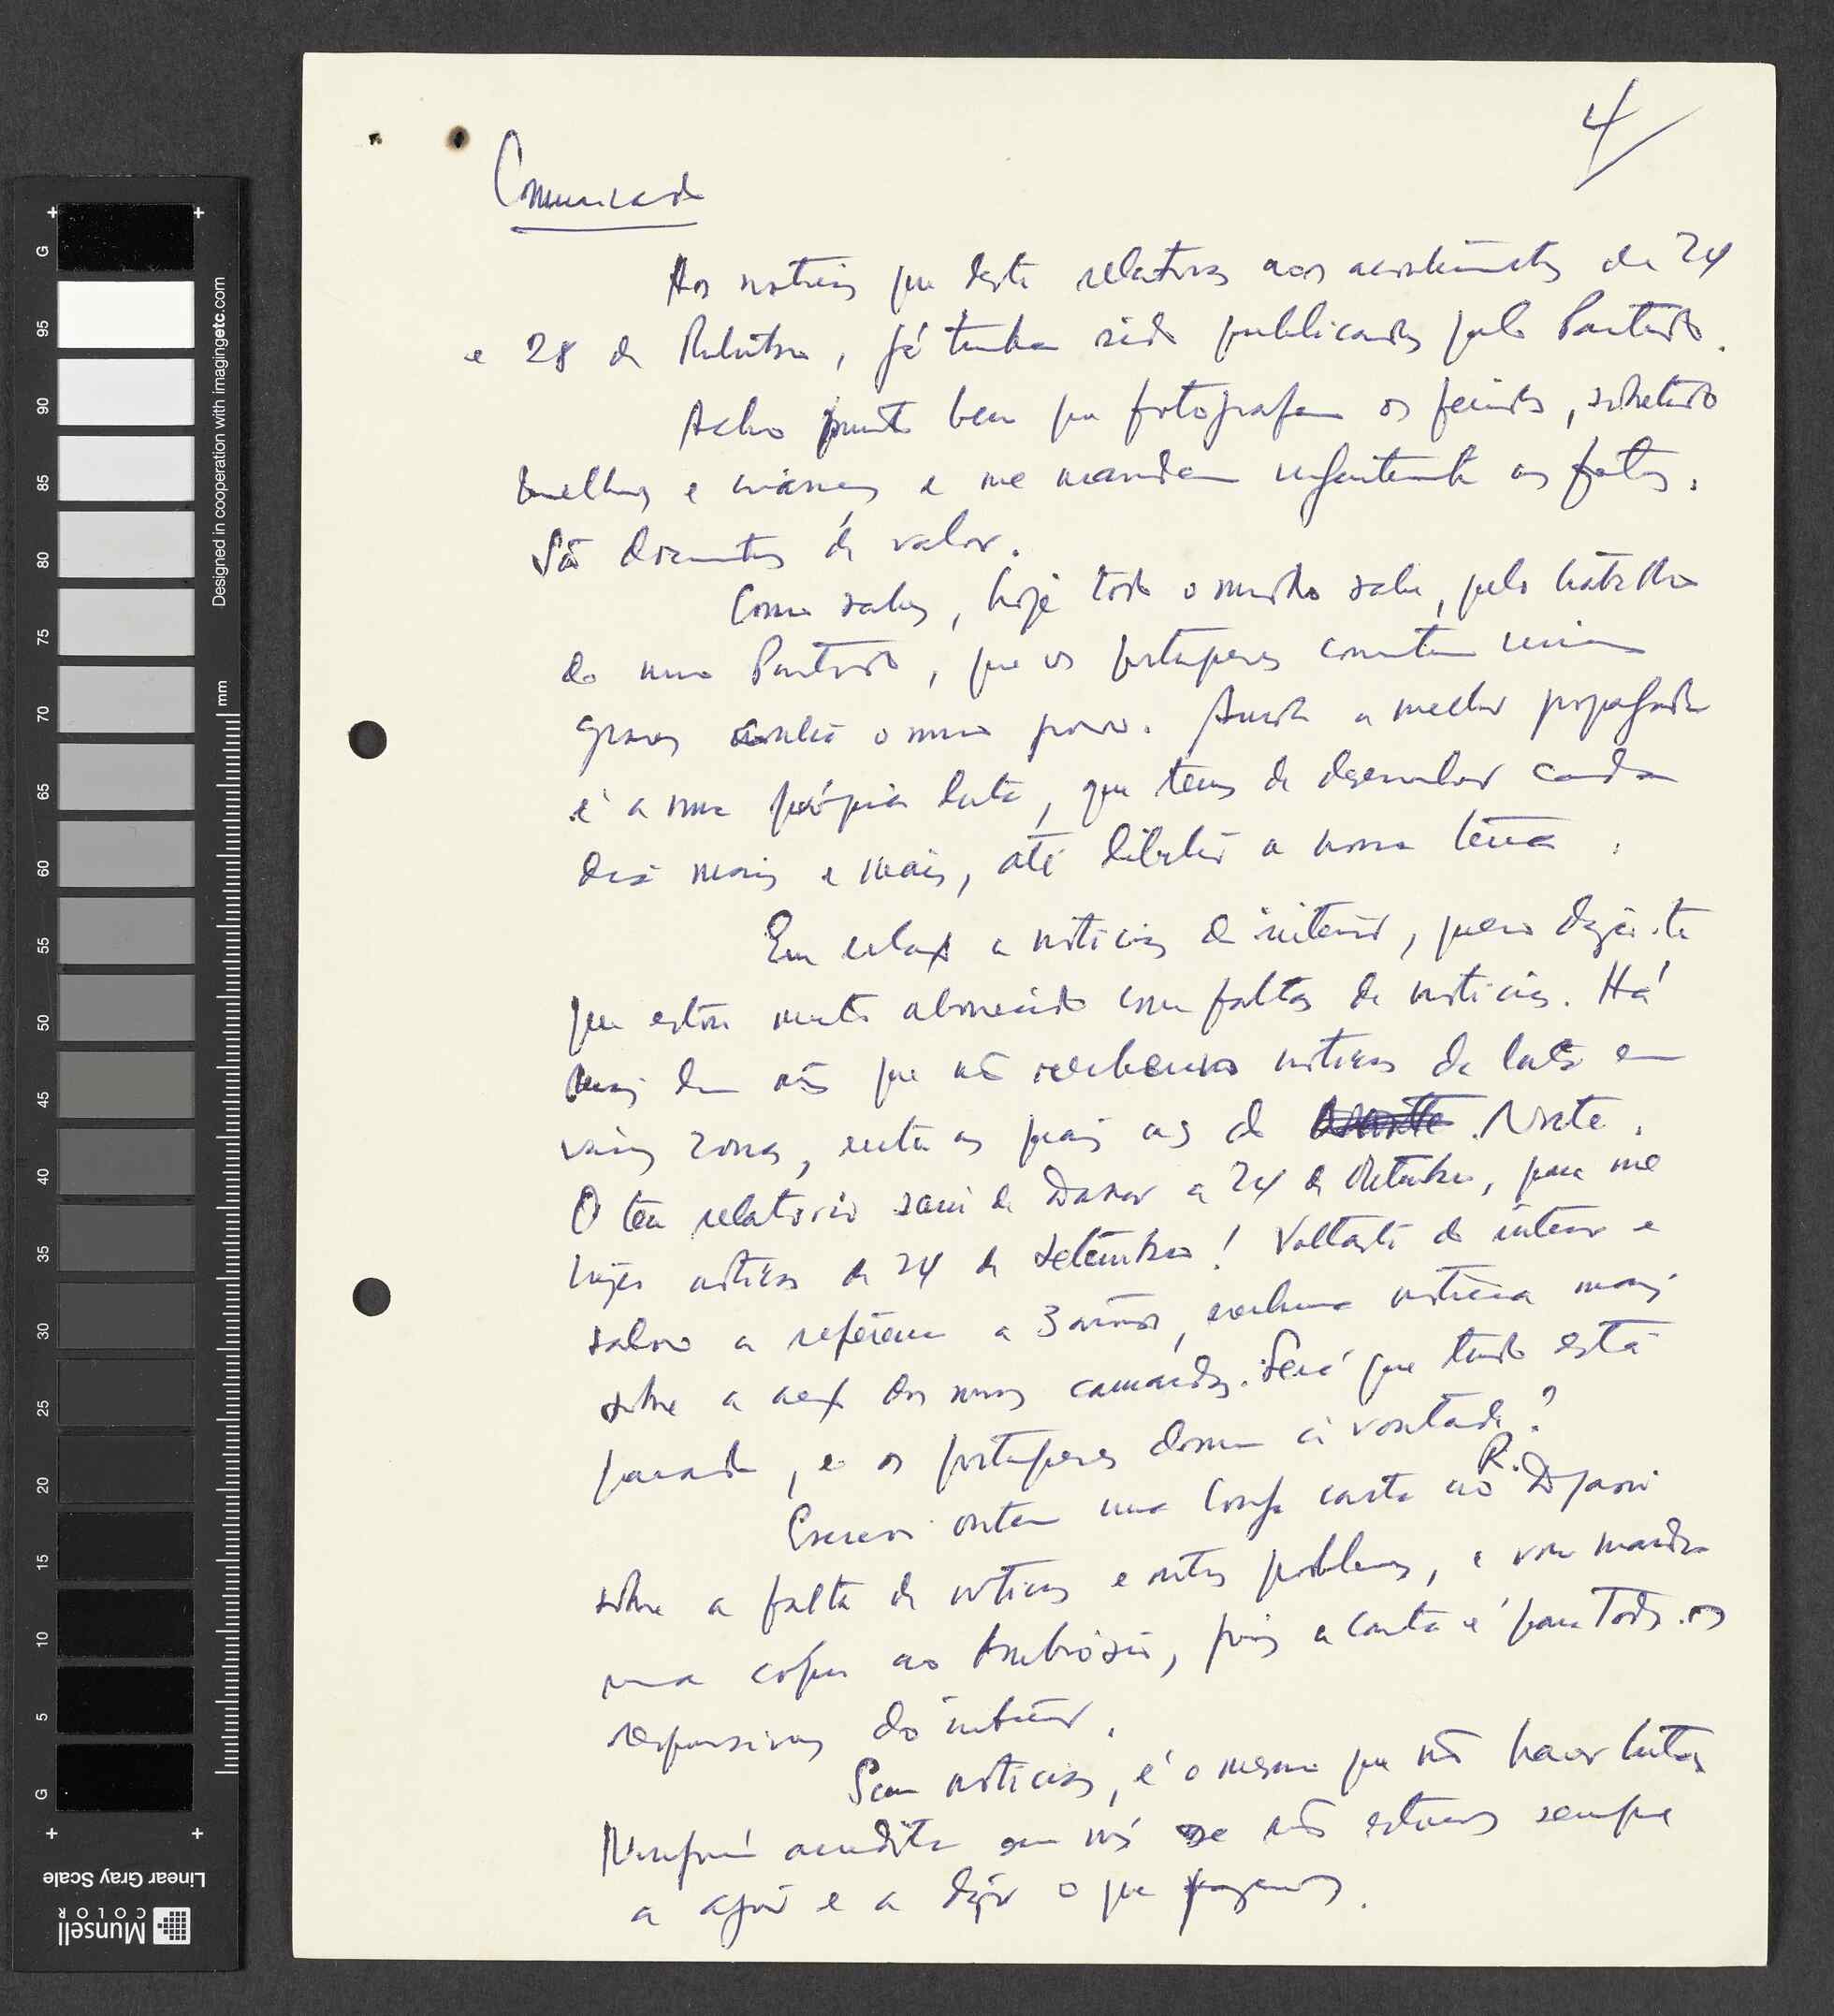 4/
Comunicado
As notícias que deste relativas aos acontecimentos de 24
e 28 de Outubro, já tinham sido publicadas pelo Partido.
Acho muito bem que fotografem os feridos, sobretudo
mulheres e crianças e me mandem urgentemente as fotos.
São documentos de valor.
Como sabes, hoje todo o mundo sabe, pelo trabalho
do nosso Partido, que os portugueses cometem crimes
graves contra o nosso povo. Ainda a melhor propaganda
é a nossa própria luta, que temos de desenvolver cada
dia mais e mais, até libertar a nossa terra.
Em relação a notícias do interior, quero dizer-te
que estou muito aborrecido com faltas de notícias. Há
mais dum mês que não recebemos notícias da luta em
várias zonas, entre as quais as do Norte.
O teu relatório saiu de Dakar a 24 de Outubro, para me
trazer notícias de 24 de Setembro! Voltaste do interior e
salvo a referência a 3 aviões, nenhuma notícia mais
sobre a acção dos nossos camaradas. Será que tudo está
parado, e os portugueses dormem à vontade?
Escrevi ontem uma longa carta ao R. Djassi
sobre a falta de notícias e outros problemas, e vou mandar
uma cópia ao Ambrósio, pois a carta é para todos os
responsáveis do interior.
Sem notícias, é o mesmo que não haver luta.
Ninguém acredita em nós se não estamos sempre
a agir e a dizer o que fazemos.
Designed in cooperation with imagingetc.com
mm
G 95 90 85 80 75 70 65 60 55 50 45 40 35 30 25 20 15 10 5 G
Linear Gray Scale
Munsell
COLOR